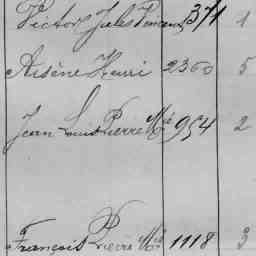 Victor Jules Vincent 371 1
Arsène Henri 2360 5
Jean Louis Pierre Mie 954 2
François Pierre Mie 1118 3